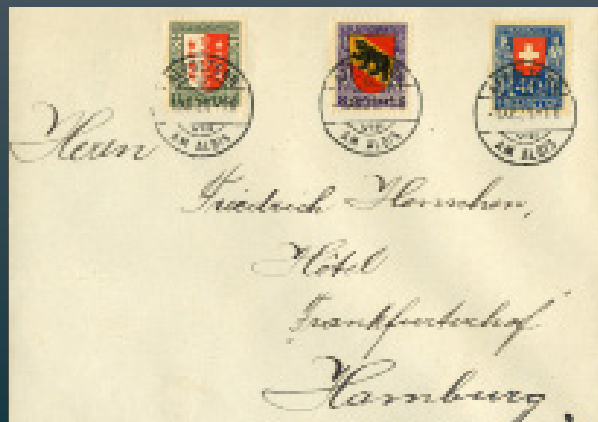 AM ALBIS
AM ALBIS
40
AM ALBIS
Herrn
Friedrich
Hôtel
Frankfurterhof
Hamburg